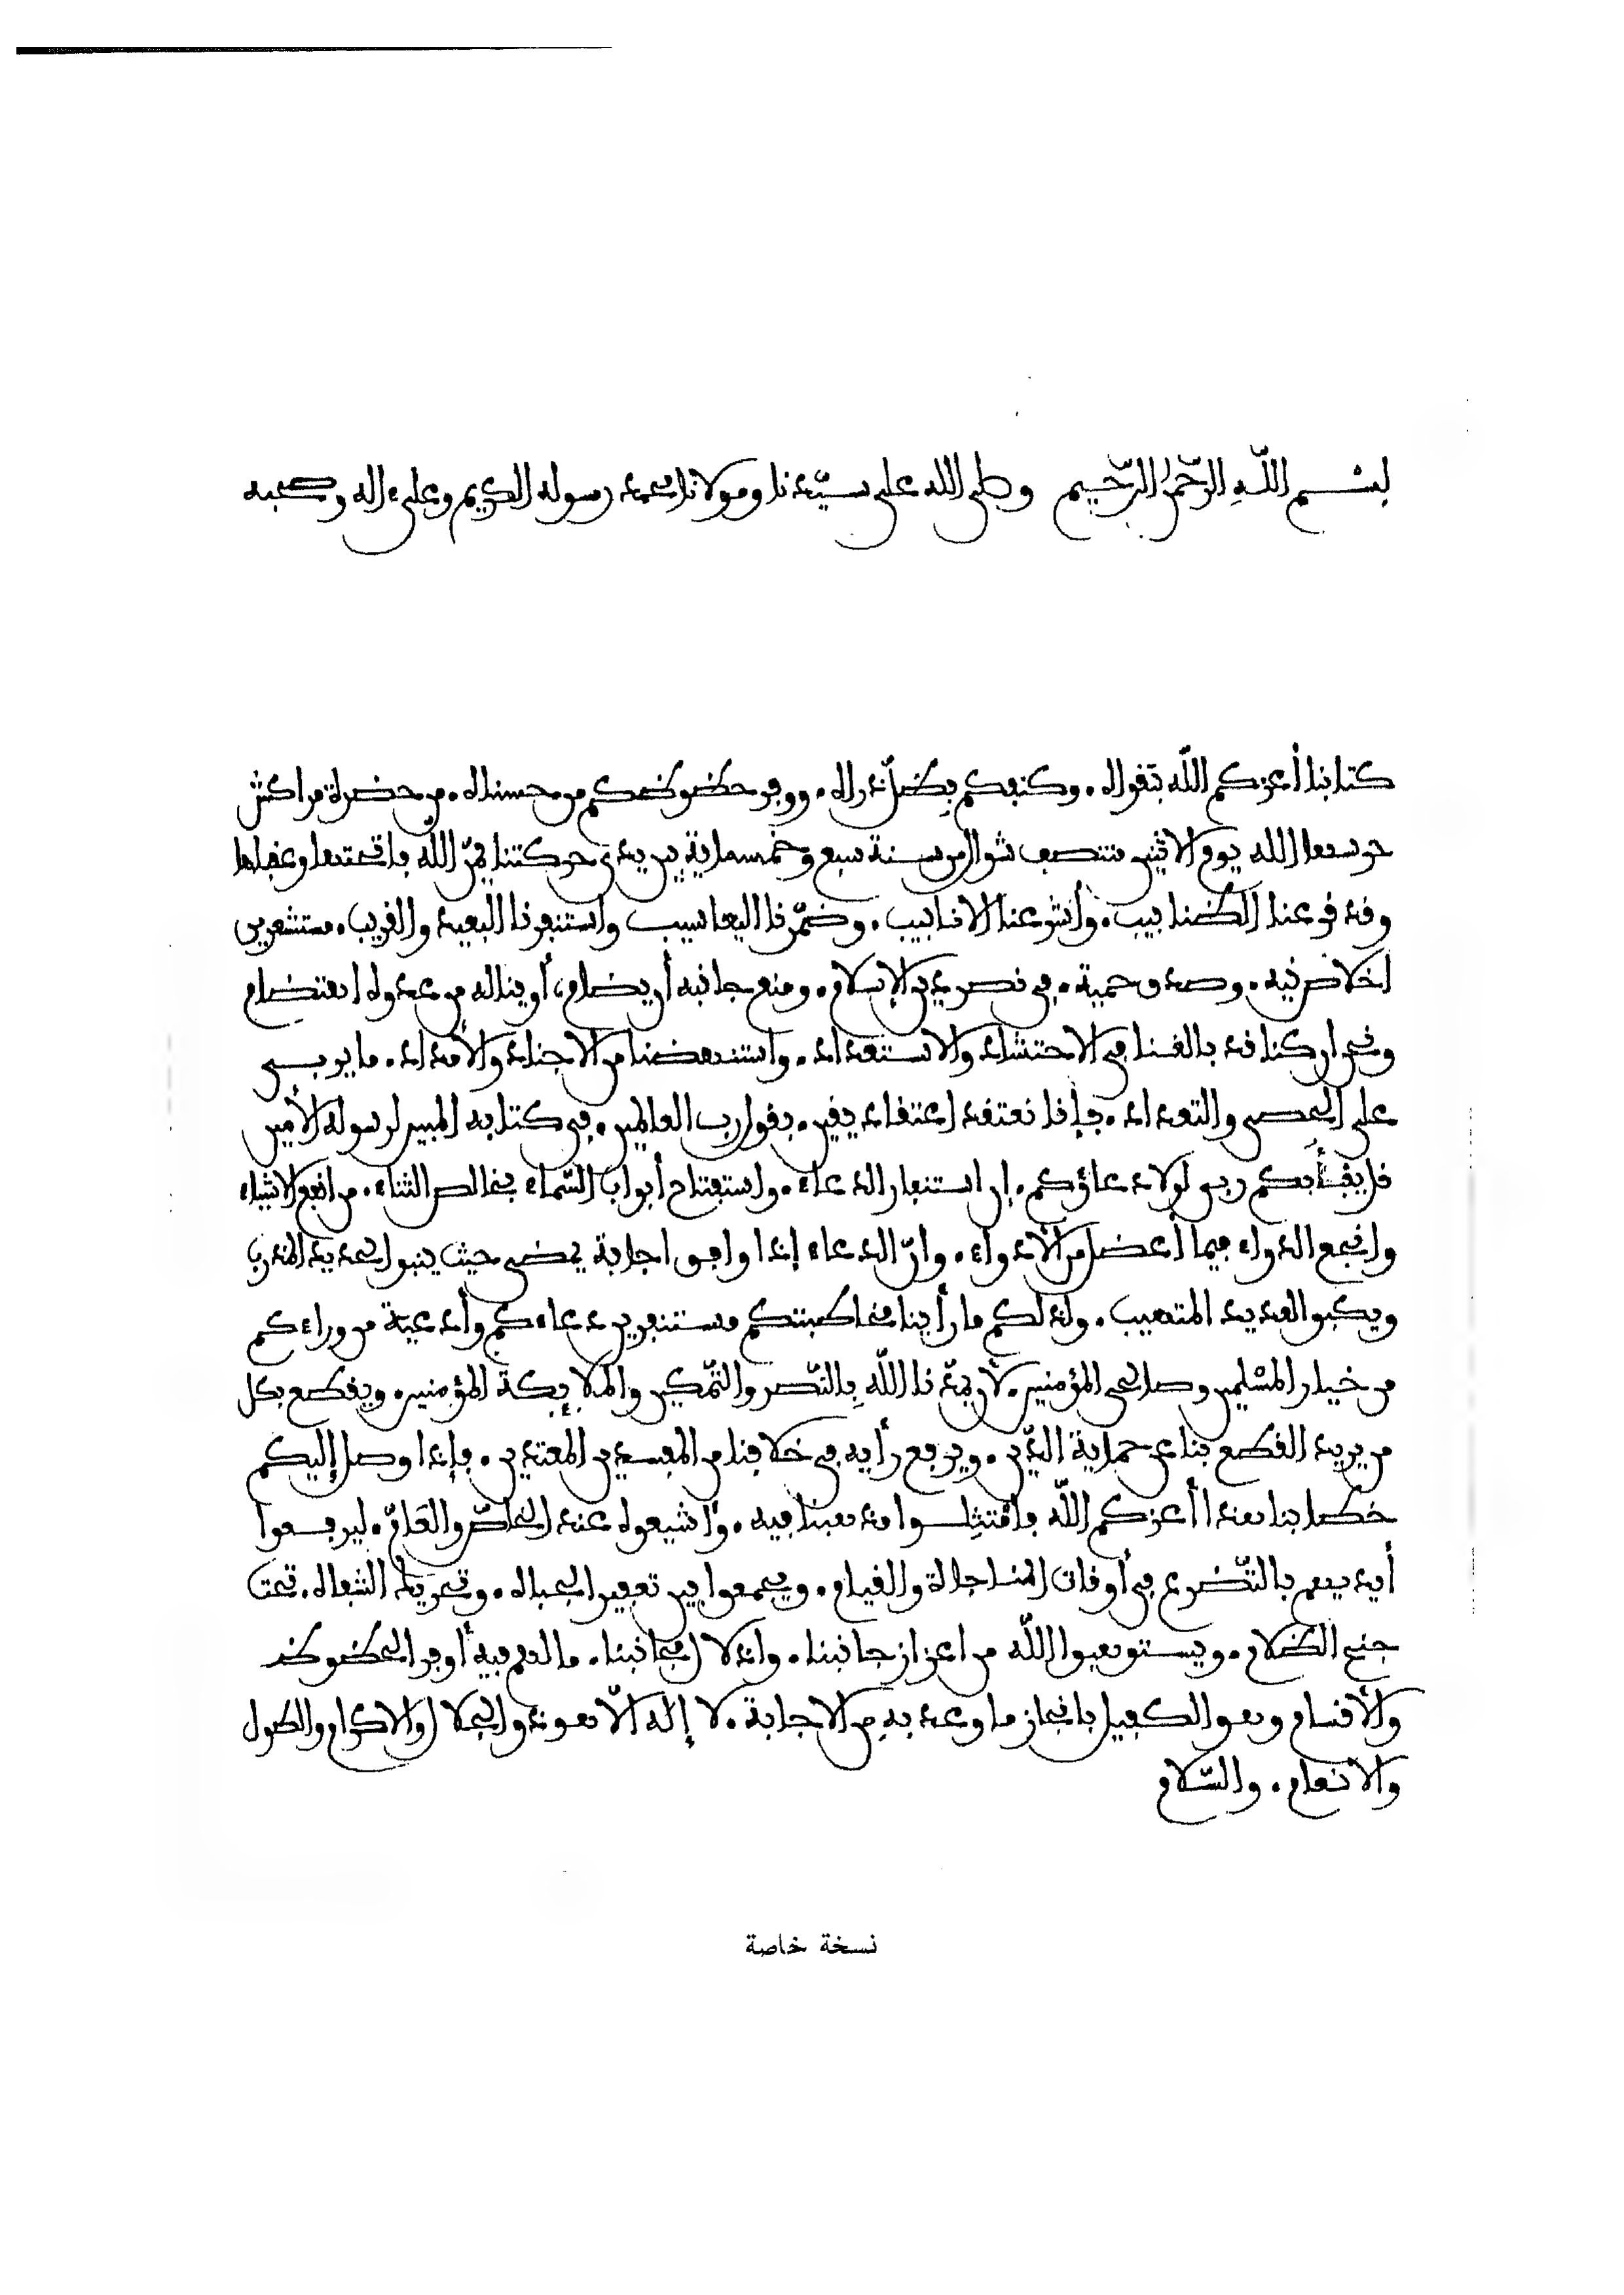 بسم اللّه الرّحمٰن الرّحيم وصلى الله على سيّدنا ومولانا محمد رسوله الكريم وعلى ءاله وصحبه
كتابنا أعزكم اللّه بتقواه . وكنفكم بظلّ ذراه . ووفر حظوظكم من حسناه . من حضرة مراكش
حرسها الله يوم الاثنين منتصف شوال من سنة سبع وخمسماية بين يدي حركتنا يمّن اللّه فاتحتها وعقباها
وقد قرعنا الظنابيب . وأشرعنا الانابيب . وضمّرنا اليعاسيب واستنفرنا البعيد والقريب . مستشعرين
اخلاص نيه . وصدق حمية . في نصر دين الإسلام . ومنع جانبه أن يضام ، أو يناله من عدوه اهتضام
ونحن ان كنا قد بالغنا في الاحتشاد والاستعداد . واستنهضنا من الاجناد والأمداد . ما يربـى
على الحصى والتعداد . فإنا نعتقد اعتقاد يقين . بقول رب العالمين . في كتابه المبين لرسوله الأمين
ما يعبأ بكم ربي لولا دعاؤكم . إن استنفار الدعاء . واستفتاح أبواب السّماء بخالص الثناء . من انفع الاشياء
وانجع الدواء فيما أعضل من الأدواء . وانّ الدعاء إذا وافق اجابة يمضى حيث ينبو الحديد المذرب
ويكبو العديد المتهيب . ولذلكم ما رأينا مخاطبتكم مستنفرين دعاءكم وأدعية من وراءكم
من خيار المسْلمين وصالحى المؤمنين . لأن يمدّنا اللّه بالنّصر والتّمكين والملائكة المؤمنين . ويقطع بكل
من يريد القطع بنا عن حماية الدّين . ويرفع رأيه في خلافنا من المفسدين المعتدين . فإذا وصل إليكم
خطابنا هذا أعزكم اللّه فامْتثِلـوا مذهبنا فيه . وأشيعوه عند الخاصّ والعَامّ . ليرفـعوا
أيديهم بالتّضرع في أوقات المناجاة والقيام . ويجمعوا بين تعفير الجباه . وتحريك الشفاه . تحت
جنح الظلام . ويستوهبوا اللّه من اعزاز جانبنا . واذلال مجانبنا . ما لهم فيه أوفر الحظوظ
والأقسام وهو الكفيل بانجاز ما وعد به من الاجابة . لا إله الّا هو ذو الجلال والاكرام والطول
والانعام . والسّلام
نسخة خاصة